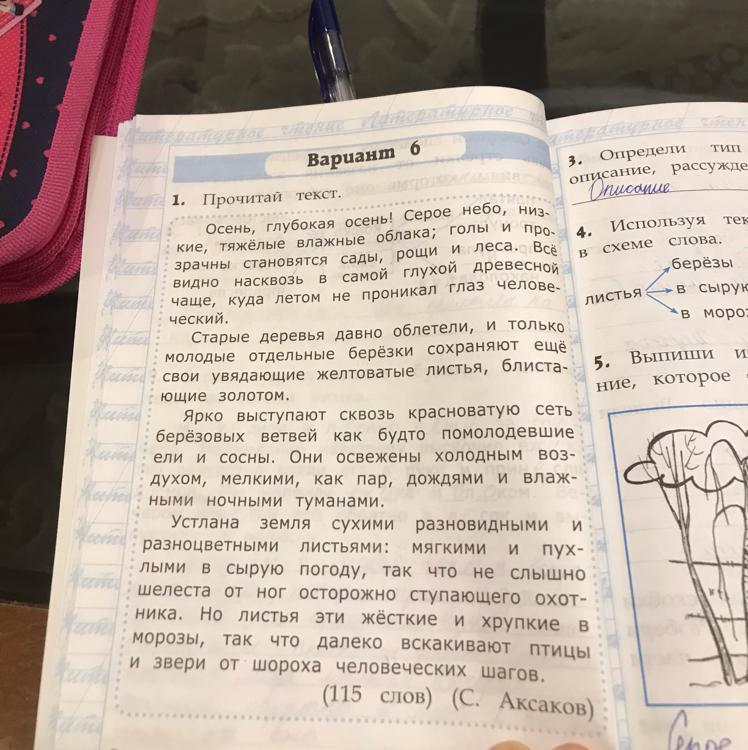 Литературное чтение Литературное
Вариант 6
1. Прочитай текст.
Осень, глубокая осень! Серое небо, низ-
кие, тяжёлые влажные облака; голы и про-
зрачны становятся сады, рощи и леса. Всё
видно насквозь в самой глухой древесной
чаще, куда летом не проникал глаз челове-
ческий.
Старые деревья давно облетели, и только
молодые отдельные берёзки сохраняют ещё
свои увядающие желтоватые листья, блиста-
ющие золотом.
Ярко выступают сквозь красноватую сеть
берёзовых ветвей как будто помолодевшие
ели и сосны. Они освежены холодным воз-
духом, мелкими, как пар, дождями и влаж-
ными ночными туманами.
Устлана земля сухими разновидными и
разноцветными листьями: мягкими и пух-
лыми в сырую погоду, так что не слышно
шелеста от ног осторожно ступающего охот-
ника. Но листья эти жёсткие и хрупкие в
морозы, так что далеко вскакивают птицы
и звери от шороха человеческих шагов.
(115 слов) (С. Аксаков)
3. Определи тип
описание, рассужде
Описание
4. Используя тек
в схеме слова.
листья
берёзы
в сырую
в мороз
5. Выпиши и
ние, которое
Серое